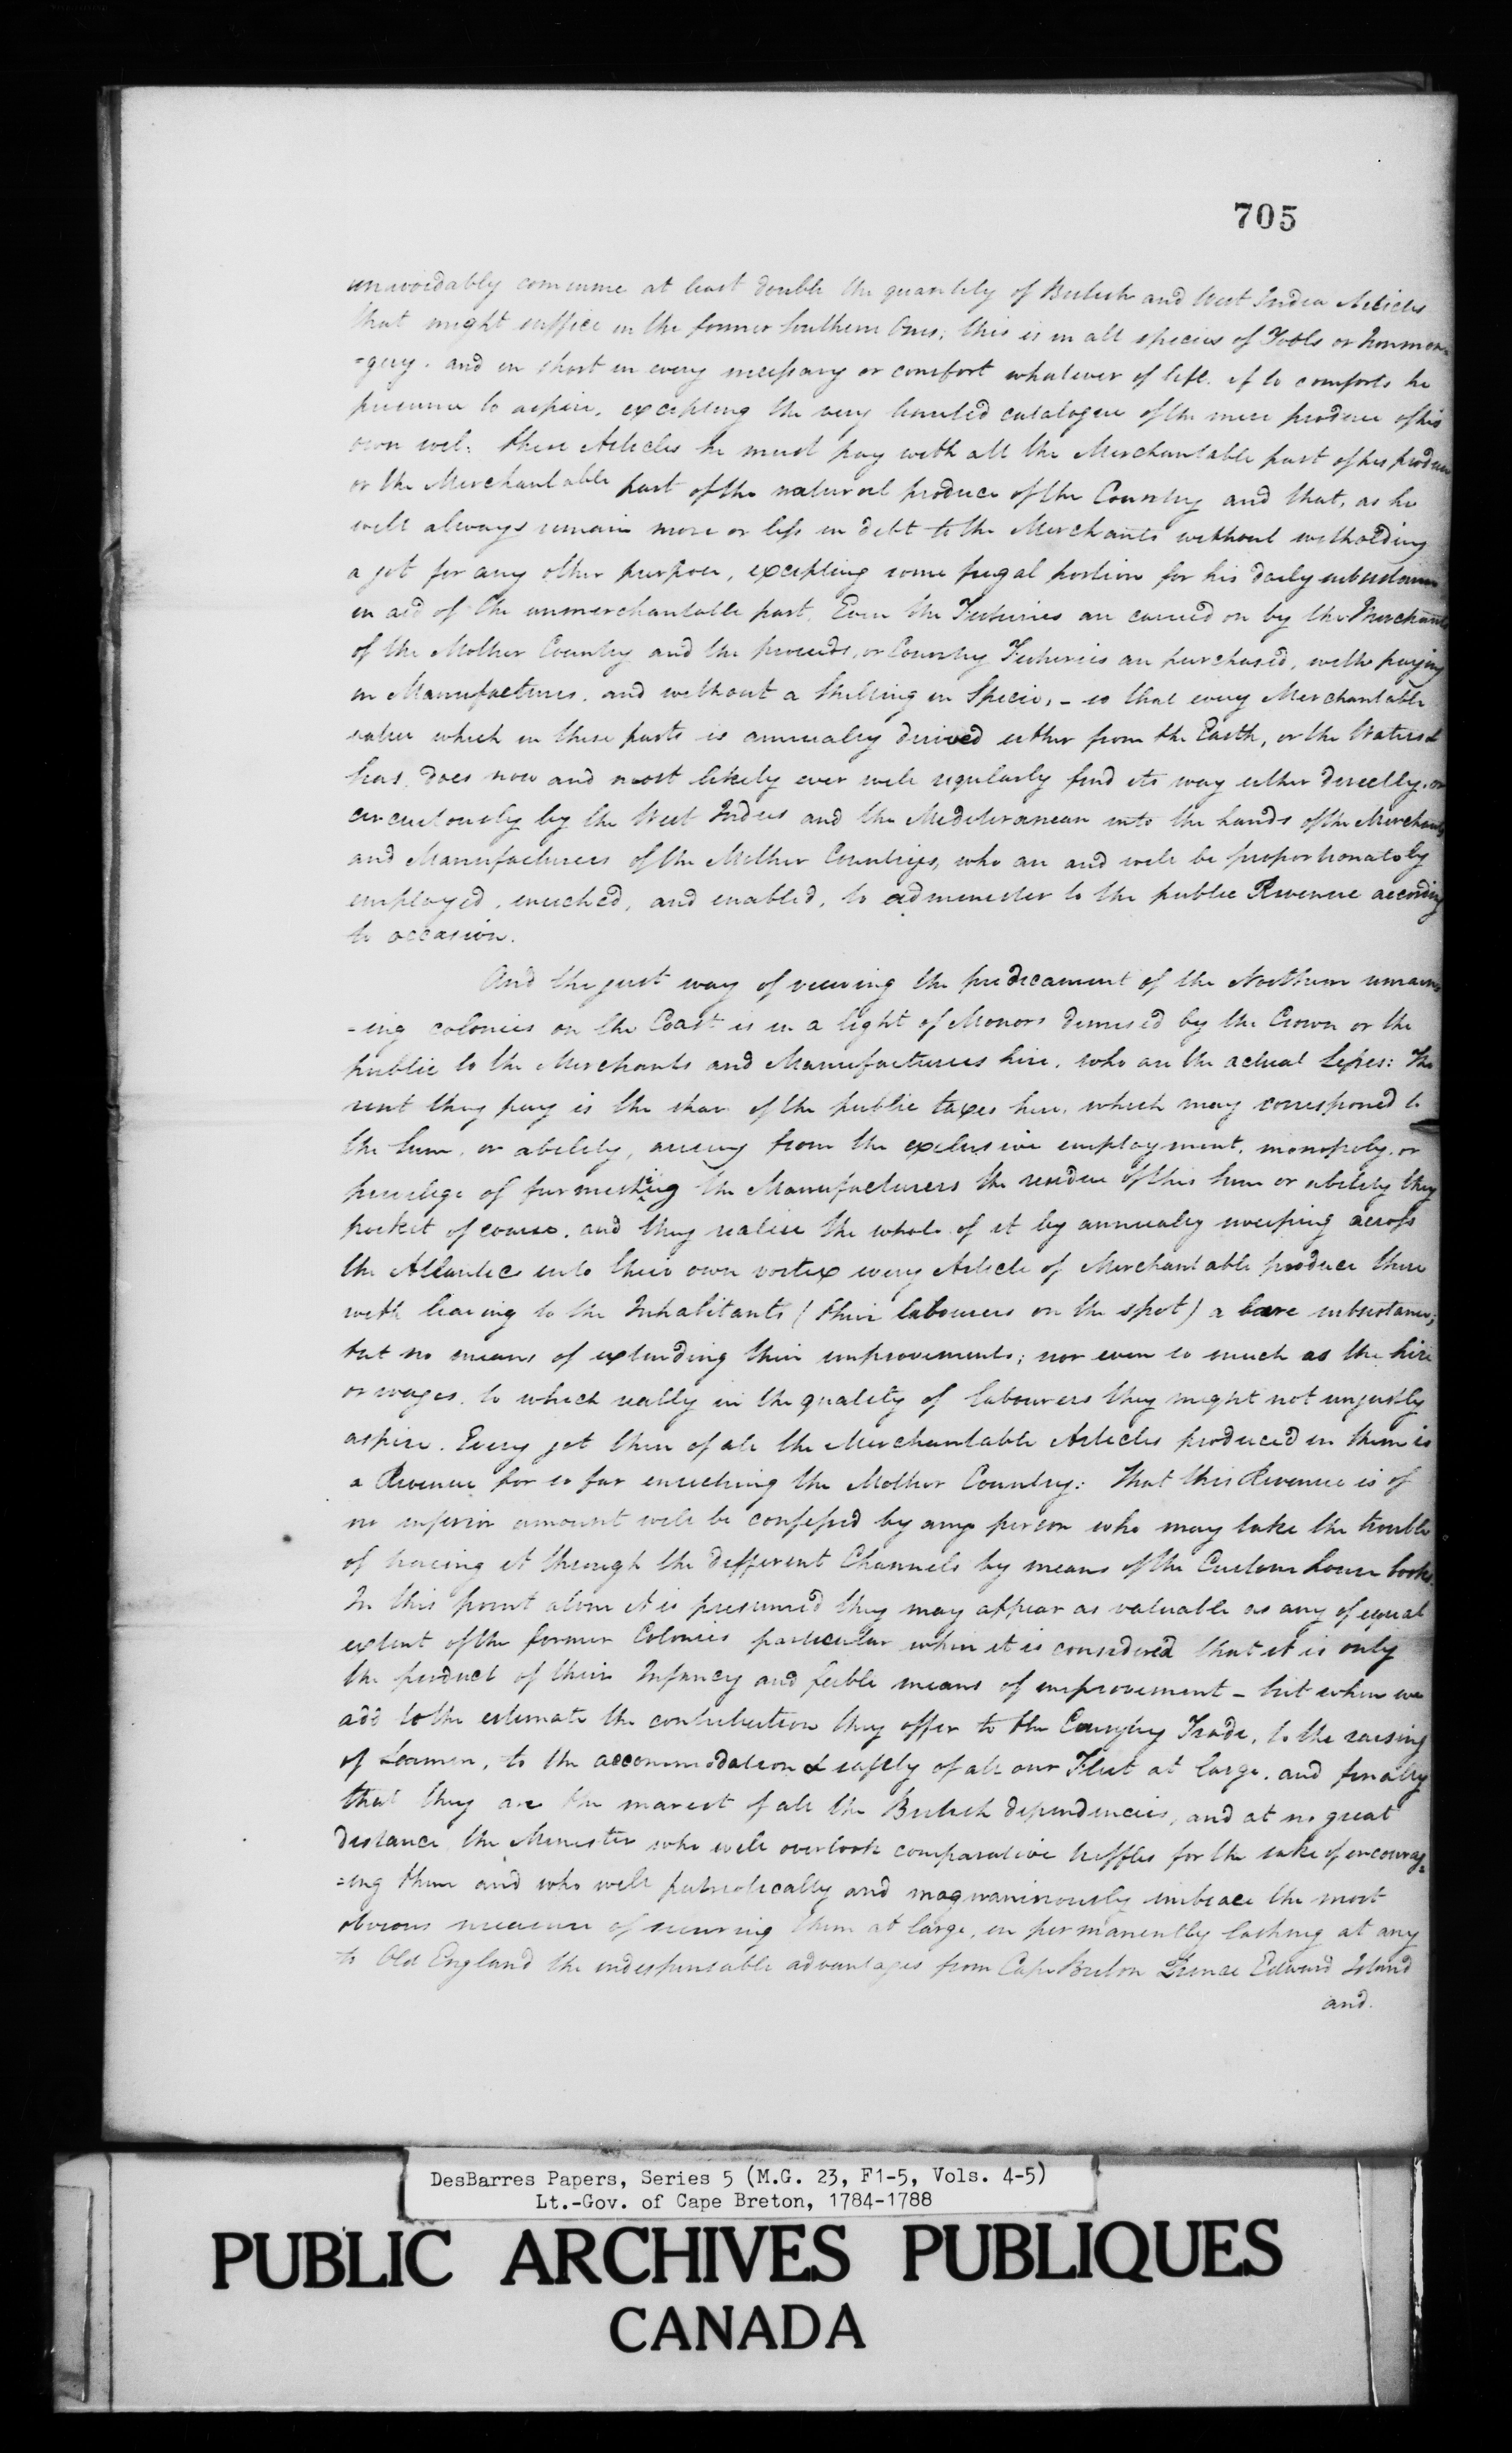 705
unavoidably consume at least double the quantity of British and West India Articles
that might suffice in the former Southern Ones; this is in all species of Tools or Ironmon=
=gery. and in short in every necessary or comfort whatever of life. if to comforts he
presume to aspire, excepting the very limited catalogue of the mere produce of his
own soil: these Articles he must pay with all the Merchantable part of his produce
or the Merchantable part of the natural produce of the Country and that, as he
will always remain more or less in debt to the Merchants without witholding
a jot for any other purpose, excepting some frugal portion for his daily subsistance
in aid of the unmerchantable part. Even the Fisheries are carried on by the Merchants
of the Mother Country and the proceeds, or Country Fisheries are purchased, with paying
in Manufactures. and without a Shilling in Specie, - so that every Merchantable
value which in these parts is annually derived either from the Earth, or the Waters &
has, does now and most likely ever will regularly find its way either directly, or
circuitously by the West Indies and the Mediteranean into the hands of the Merchants
and Manufacturers of the Mother Countrys, who are and will be proportionatoly
employed, enriched, and enabled, to administer to the public Revenue according
to occasion.
And the just way of viewing the predicament of the Northern remain
-ing colonies on the Coast is in a light of Monors demised by the Crown or the
public to the Merchants and Manufacturers here, who are the actual Lesses: The
rent they pay is the share of the public taxes here, which may correspond to
the Sum, or ability, arising from the exclusive employment, monopoly, or
privilege of furnishing the Manufacturers the residue of this Sum or ability they
pocket of course, and they realise the whole of it by annualy sweeping across
the Atlantic into their own vortex every Article of Merchantable produce there
with leaving to the Inhabitants (their labourers on the spot) a bare subsistance;
but no means of extending their improvements; nor even so much as the hire
or wages, to which really in the quality of labourers they might not unjustly
aspire. Every jot then of all the Merchantable Articles produced in them is
a Revenue for so far enriching the Mother Country: That this Revenue is of
no inferior amount will be confessed by any person who may take the trouble
of tracing it through the different Channels by means of the Custom House books.
In this point alone it is presumed they may appear as valuable as any of equal
extent of the former Colonies particular when it is considered that it is only
the product of their Infancy and feeble means of improvement - but when we
add to the estimate the contribution they offer to the Carrying Trade, to the raising
of Seamen, to the accommodation & safety of all our Fleet at large. and finally
that they are the nearest of all the British dependencies, and at no great
distance, the Minister who will overlook comparative triffles for the sake of encourag=
=ing them and who will patriotically and magnanimously embrace the most
obvious measure of securing them at large, in permanently lashing at any
to Old England the indispensable advantages from Cape Breton Prince Edward Island
and.
DesBarres Papers, Series 5 (M.G. 23, F1-5, Vols. 4-5)
Lt.-Gov. of Cape Breton, 1784-1788
PUBLIC ARCHIVES PUBLIQUES
CANADA